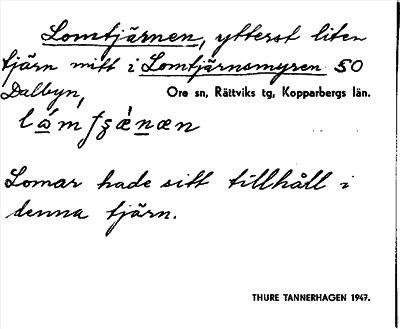 Lomtjärnen, ytterst liten
tjärn mitt i Lomtjärnsmyren SO
Dalbyn,
Ore sn, Rättviks tg, Kopparbergs län.
Lomar hade sitt tillhåll i
denna tjärn.
THURE TANNERHAGEN 1947.